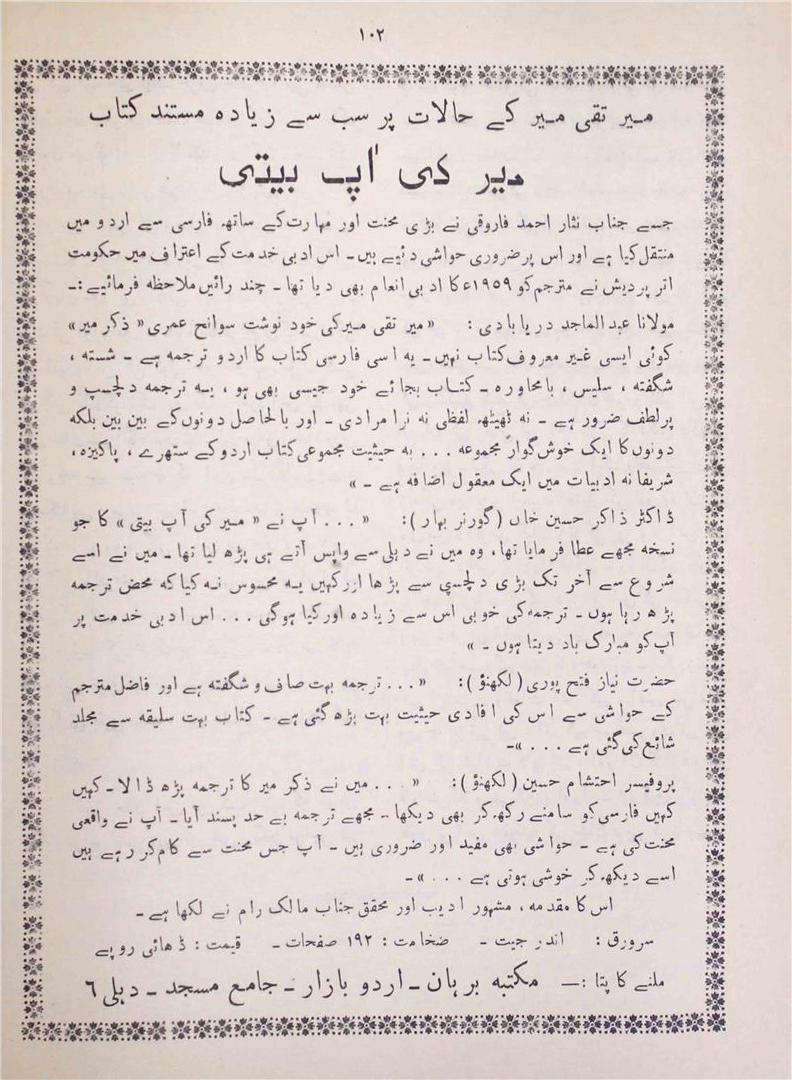 ۱۰۲
میر تقی میر کے حالات پر سب سے زیادہ مستند کتاب
میر کی آپ بیتی
جسے جناب نثار احمد فاروقی نے بڑی محنت اور مہارت کے ساتھ فارسی سے اردو میں
منتقل کیا ہے اور اس پر ضروری حواشی دئیے ہیں ۔ اس ادبی خدمت کے اعتراف میں حکومت
اتر پردیش نے مترجم کو ۱۹۵۹ء کا ادبی انعام بھی دیا تھا ۔ چند رائیں ملاحظہ فرمائیے :۔
مولانا عبد الماجد دریابادی : « میر تقی میر کی خود نوشت سوانح عمری « ذکر میر »
کوئی ایسی غیر معروف کتاب نہیں ۔ یہ اسی فارسی کتاب کا اردو ترجمہ ہے ۔ شستہ ،
شگفتہ ، سلیس ، بامحاورہ ۔ کتاب بجائے خود جیسی بھی ہو ، یہ ترجمہ دلچسپ و
پرلطف ضرور ہے ۔ نہ ٹھیٹھ لفظی نہ نرا مرادی ۔ اور بالحاصل دونوں کے بین بین بلکہ
دونوں کا ایک خوش گوار مجموعہ . . . بہ حیثیت مجموعی کتاب اردو کے ستھرے ، پاکیزہ ،
شریفانہ ادبیات میں ایک معقول اضافہ ہے ۔ »
ڈاکٹر ذاکر حسین خاں ( گورنر بہار ) : « . . . آپ نے « میر کی آپ بیتی » کا جو
نسخہ مجھے عطا فرمایا تھا ، وہ میں نے دہلی سے واپس آتے ہی پڑھ لیا تھا ۔ میں نے اسے
شروع سے آخر تک بڑی دلچسپی سے پڑھا اور کہیں یہ محسوس نہ کیا کہ محض ترجمہ
پڑھ رہا ہوں ۔ ترجمہ کی خوبی اس سے زیادہ اور کیا ہوگی . . . اس ادبی خدمت پر
آپ کو مبارک باد دیتا ہوں ۔ »
حضرت نیاز فتح پوری ( لکھنؤ ) : « . . . ترجمہ بہت صاف و شگفتہ ہے اور فاضل مترجم
کے حواشی سے اس کی افادی حیثیت بہت بڑھ گئی ہے ۔ کتاب بہت سلیقہ سے مجلد
شائع کی گئی ہے . . . »۔
پروفیسر احتشام حسین ( لکھنؤ ) : « . . . میں نے ذکر میر کا ترجمہ پڑھ ڈالا ۔ کہیں
کہیں فارسی کو سامنے رکھ کر بھی دیکھا ۔ مجھے ترجمہ بے حد پسند آیا ۔ آپ نے واقعی
محنت کی ہے ۔ حواشی بھی مفید اور ضروری ہیں ۔ آپ جس محنت سے کام کر رہے ہیں
اسے دیکھ کر خوشی ہوتی ہے . . . »۔
اس کا مقدمہ ، مشہور ادیب اور محقق جناب مالک رام نے لکھا ہے ۔
سرورق : اندر جیت ۔ ضخامت : ۱۹۲ صفحات ۔ قیمت : ڈھائی روپے
ملنے کا پتا :— مکتبہ برہان ۔ اردو بازار ۔ جامع مسجد ۔ دہلی ۶